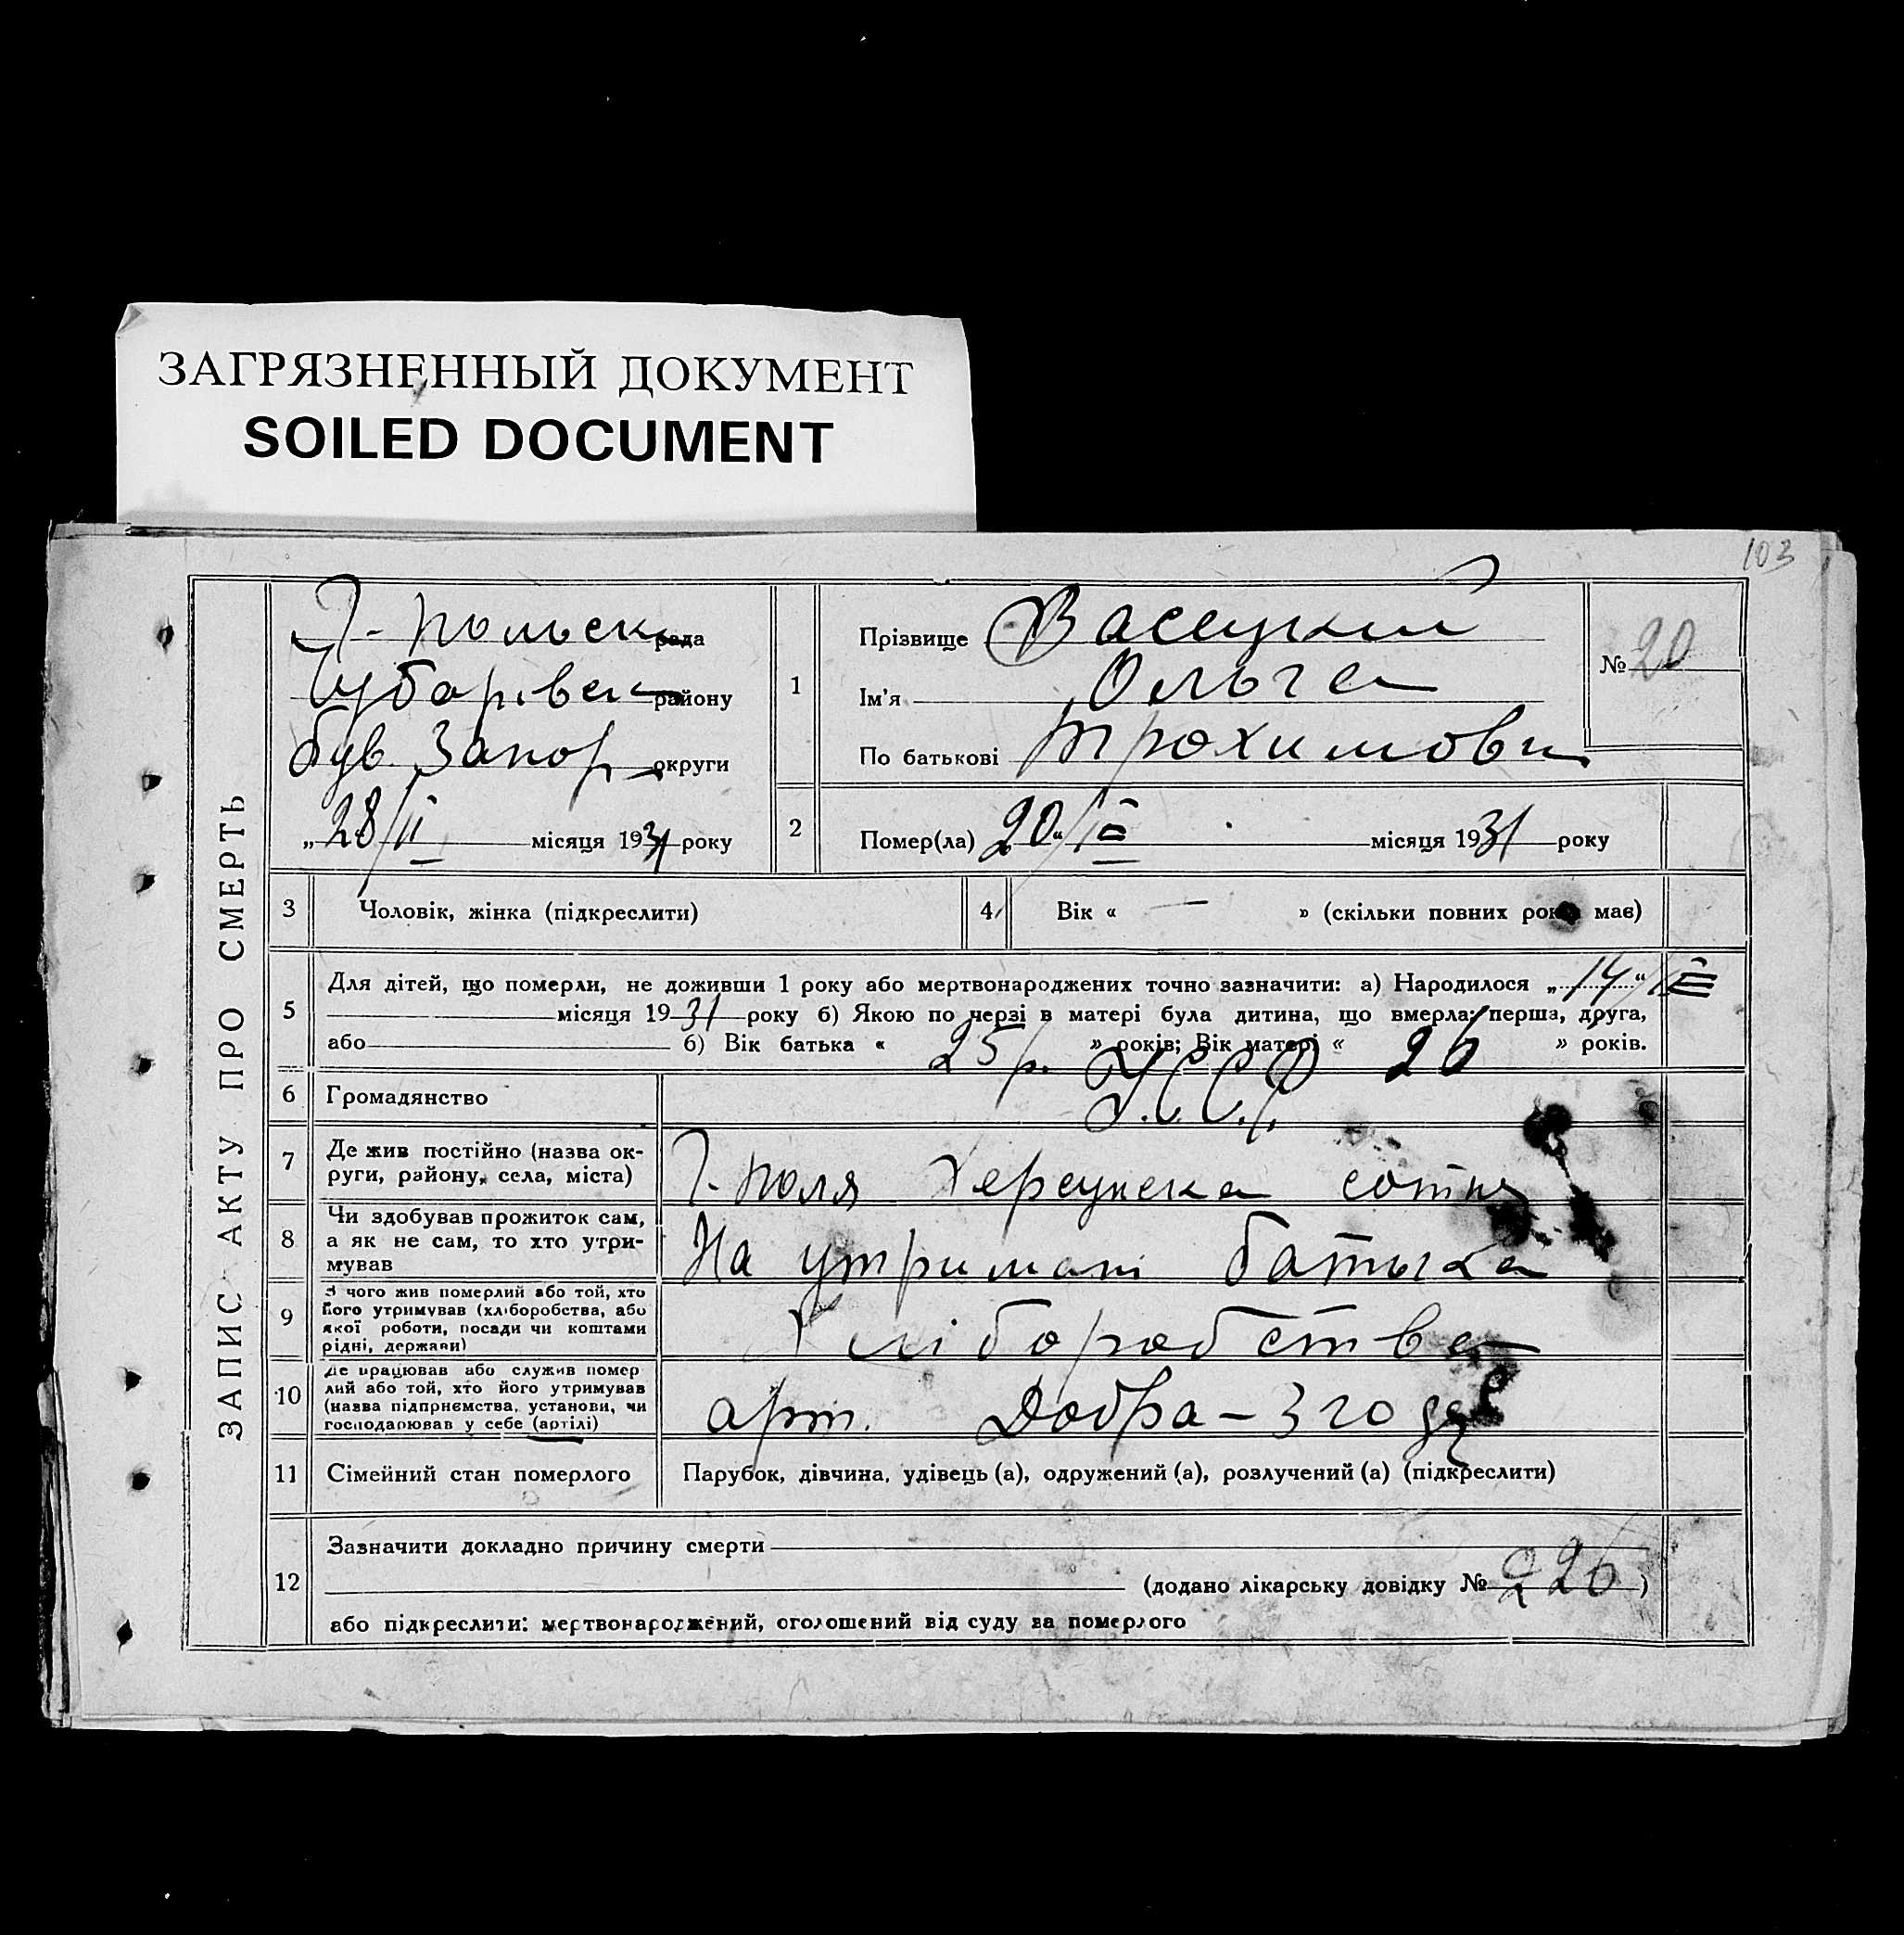 ЗАГРЯЗНЕННЫЙ ДОКУМЕНТ
SOILED DOCUMENT
103
ЗАПИС АКТУ ПРО СМЕРТЬ
Г-польск рада
Чубарівськ району
був. Запор округи
„28/II місяця 1931 року
1
Прізвище Васецкий
Ім'я Ольга
По батькові Трохимовн
№ 20
2
Помер(ла) 20 „ місяця 1931 року
3 Чоловік, жінка (підкреслити)
4 Вік « — » (скільки повних років має)
5
Для дітей, що померли, не доживши 1 року або мертвонароджених точно зазначити: а) Народилося „14"
місяця 1931 року б) Якою по черзі в матері була дитина, що вмерла: перша, друга,
або б) Вік батька « 25 р. » років; Вік матері « 26 » років.
6 Громадянство У.С.С.Р.
7 Де жив постійно (назва ок-
руги, району, села, міста)
Г-поля Херсунска сотня
8 Чи здобував прожиток сам,
а як не сам, то хто утри-
мував
На утримані батька
9 З чого жив померлий або той, хто
його утримував (хліборобства, або
якої роботи, посади чи коштами
рідні, держави)
Хліборобства
10 Де працював або служив помер
лий або той, хто його утримував
(назва підприємства, установи, чи
господарював у себе (артілі)
арт. Добра-згода
11 Сімейний стан померлого Парубок, дівчина, удівець (а), одружений (а), розлучений (а) (підкреслити)
12
Зазначити докладно причину смерти
(додано лікарську довідку № 226)
або підкреслити: мертвонароджений, оголошений від суду за померлого